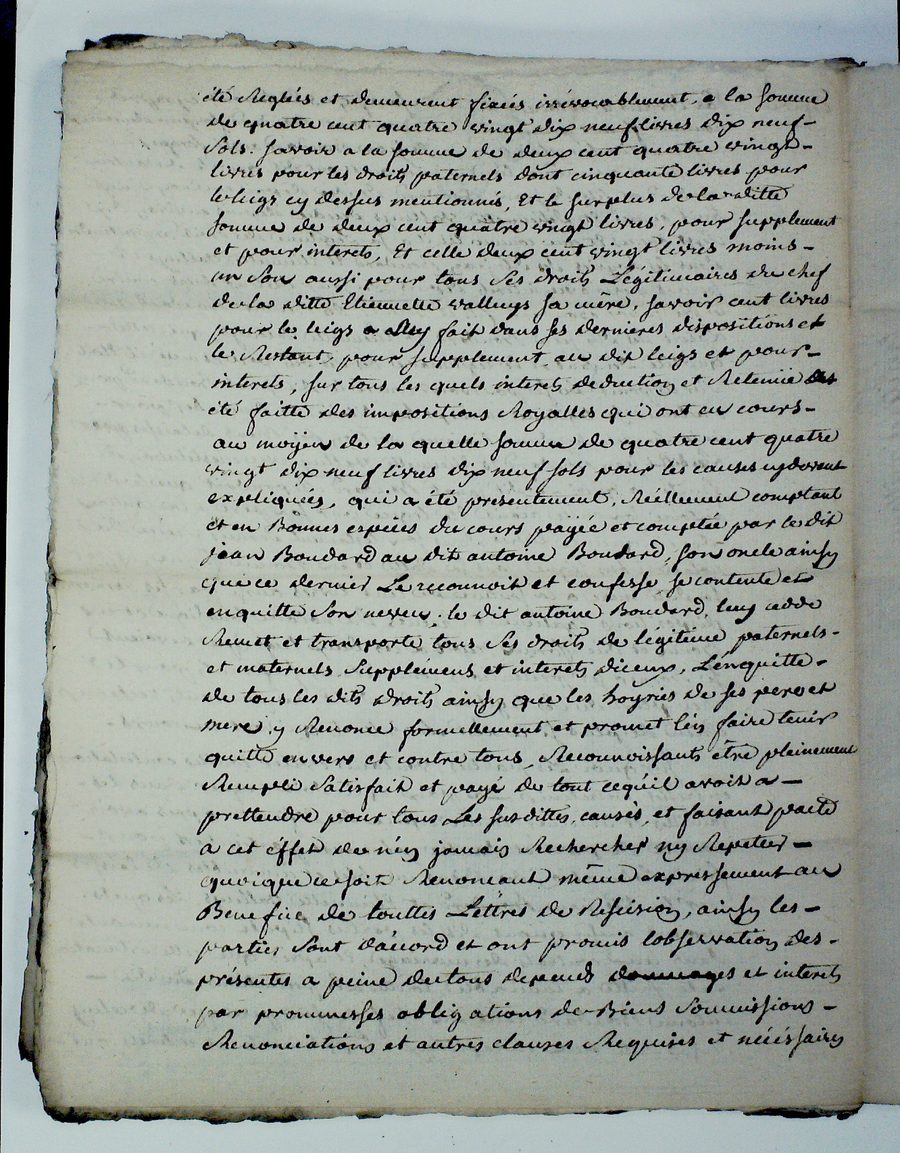 été Reglés et demeurent fixés irrévocablement, a la somme
de quatre cent quatre vingt dix neuf livres dix neuf-
sols. savoir a la somme de deux cent quatre vingt-
livres pour les droits paternels dont cinquante livres pour
le leigs cy dessus mentionnés, Et le surplus de la ditte
somme de deux cent quatre vingt livres, pour supplement
et pour interets, Et celle deux cent vingt livres moins-
un Sou aussi pour tous Ses droits Légitimaires du chef
de la ditte Etiennette valleys sa mère, savoir cent livres
pour le leigs a luy fait dans ses dernieres dispositions et
le Restant, pour supplement au dit leigs et pour-
interets, sur tous les quels interets deduction et Retenüe
été faitte des impositions Royalles qui ont eu cours-
au moyen de la quelle somme de quatre cent quatre
vingt dix neuf livres dix neuf sols pour les causes cy devant
expliquées, qui a été presentement, Réellement comptant
et en Bonnes espèces du cours payée et comptée par le dit
jean Boudard au dit antoine Boudard, son oncle ainsy
que ce dernier Le reconnoit et confesse, se contente et
en quitte Son neveu; le dit antoine Boudard luy cedde
Remet et transporte tous Ses droits de légitime paternels-
et maternels Supplémens et interets diceux, L'enquitte-
de tous les dits droits ainsy que les hoyries de ses pere et
mere, y Renonce formellement et promet l'en faire tenir
quitte envers et contre tous, Reconnoissants être pleinement
Rempli Satisfait et payé de tout ce qu'il avoit a-
prettendre pour tous Les susdittes causes, et faisant pacte
a cet éffet de n'en jamais Rechercher ny Repeter-
quoique ce soit Renoncant même expressement au
Benefice de touttes Lettres de Resision, ainsy les-
parties Sont d'accord et ont promis lobservation des-
présentes a peine de tous depends dommages et interets
par prommesses obligations de Biens Soumissions-
Renonciations et autres clauses Requises et nécessaires